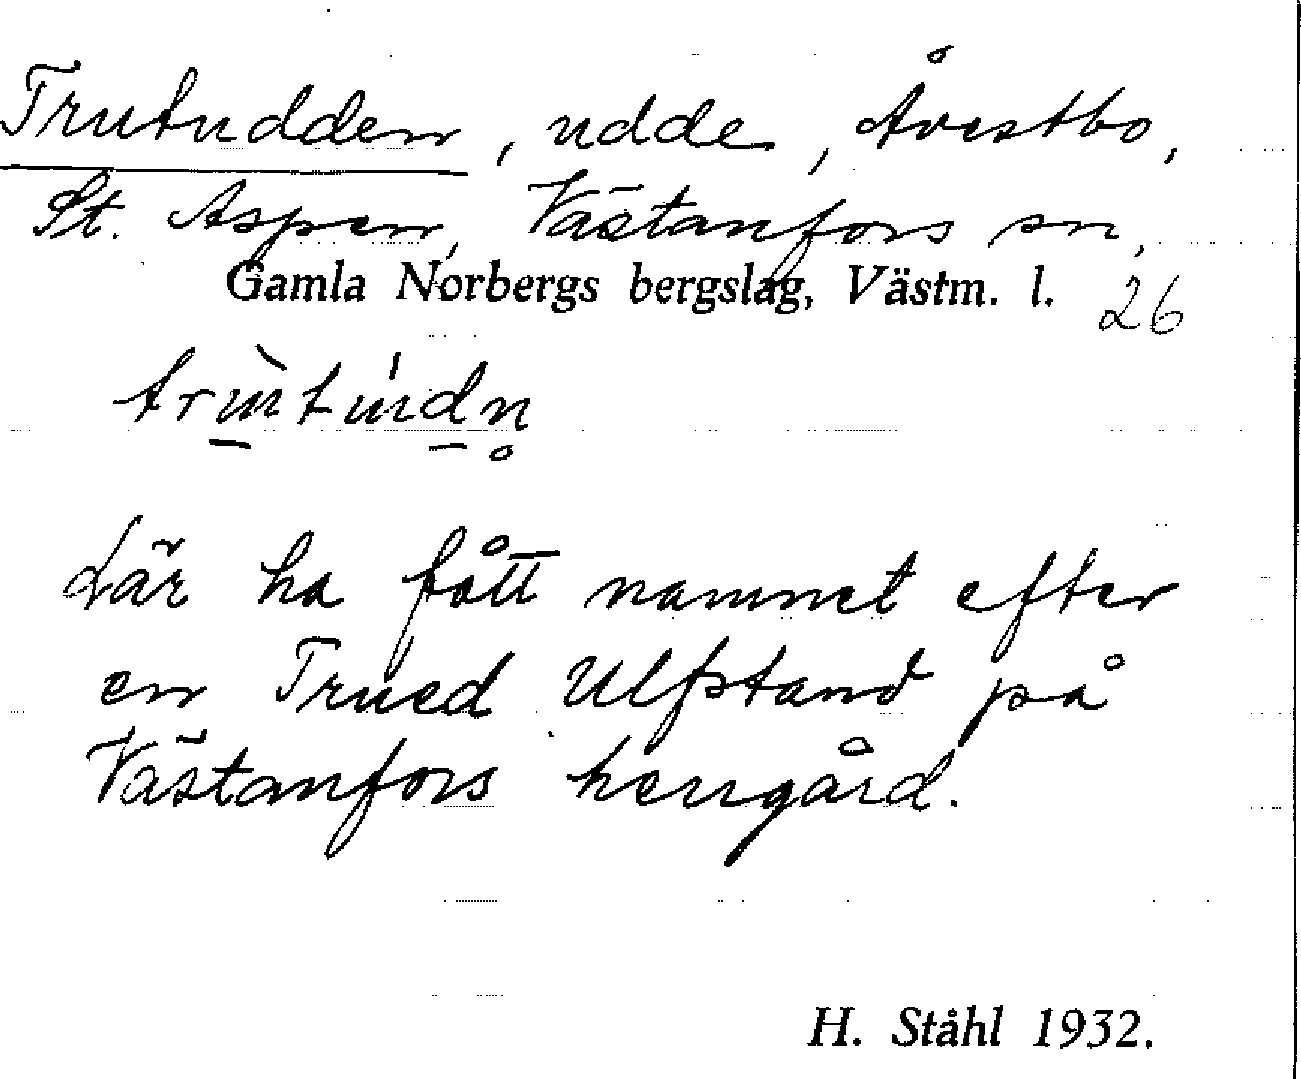 Trutudden, udde, Åvestbo,
St. Aspen, Västanfors sn,
Gamla Norbergs bergslag, Västm. l.
26
Lär ha fått namnet efter
en Trued Ulfstand på
Västanfors herrgård.
H. Ståhl 1932.